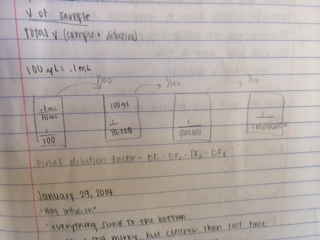 V of sample
total V (sample + dilution)
100 µL = .1 mL
1/100 1/100 1/100
.1mL
10mL
1
100
100 µL
1
10,000
1
1,000,000
1
100,000,000
Final dilution factor = DF₁ · DF₂ · DF₃ · DF₄
January 29, 2014
"Hay Infusion"
- everything sunk to the bottom
still murky but clearer than last time